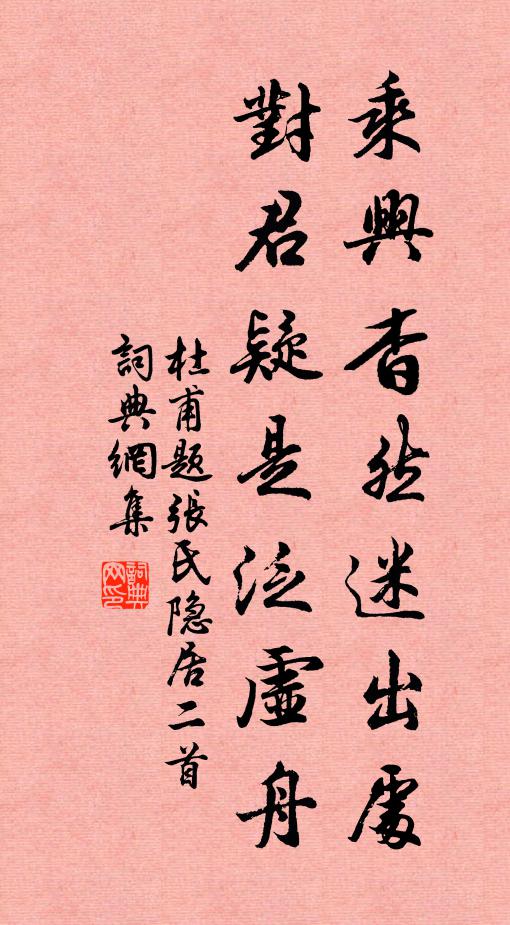 乘興杳然迷出處
對君疑是泛虛舟
杜甫題張氏隐居二首
詞典網集
詞典
网印